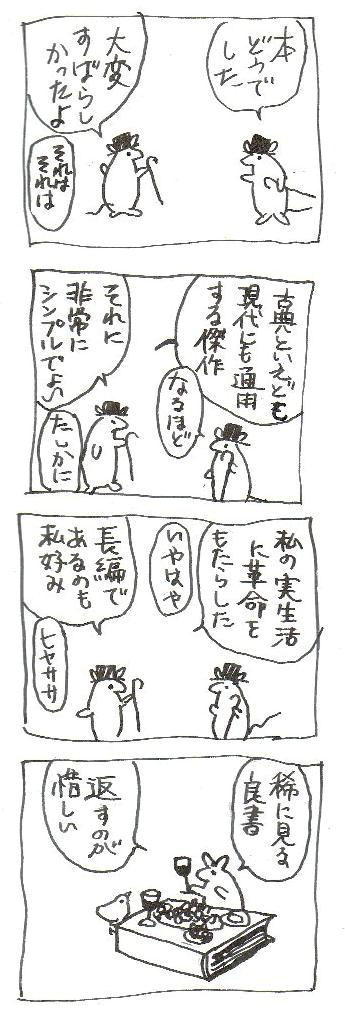 本
どうで
した
大変
すばらし
かったよ
それは
それは
古典といえども
現代にも通用
する傑作
なるほど
それに
非常に
シンプルでよい
たしかに
私の実生活
に革命を
もたらした
いやはや
長編で
あるのも
私好み
ヒヤササ
稀に見る
良書
返すのが
惜しい